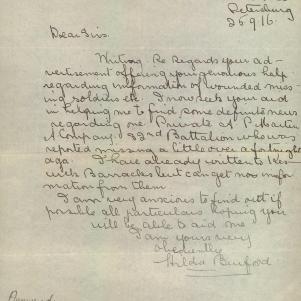 Petersburg
25 9 16.
Dear Sirs.
Writing Re Regards your ad-
vertisement offering your generous help
regarding information of wounded miss-
ing soldiers etc. I now seek your aid
in helping me to find some definite news
regarding one Private P. Martin
A Company. 32nd Battalion who was
reported missing a little over a fortnight
ago. I have already written to Kes-
wick Barracks but can get no infor-
mation from them.
I am very anxious to find out if
possible all particulars hoping you
will be able to aid me
I am yours very
Hilda Burford